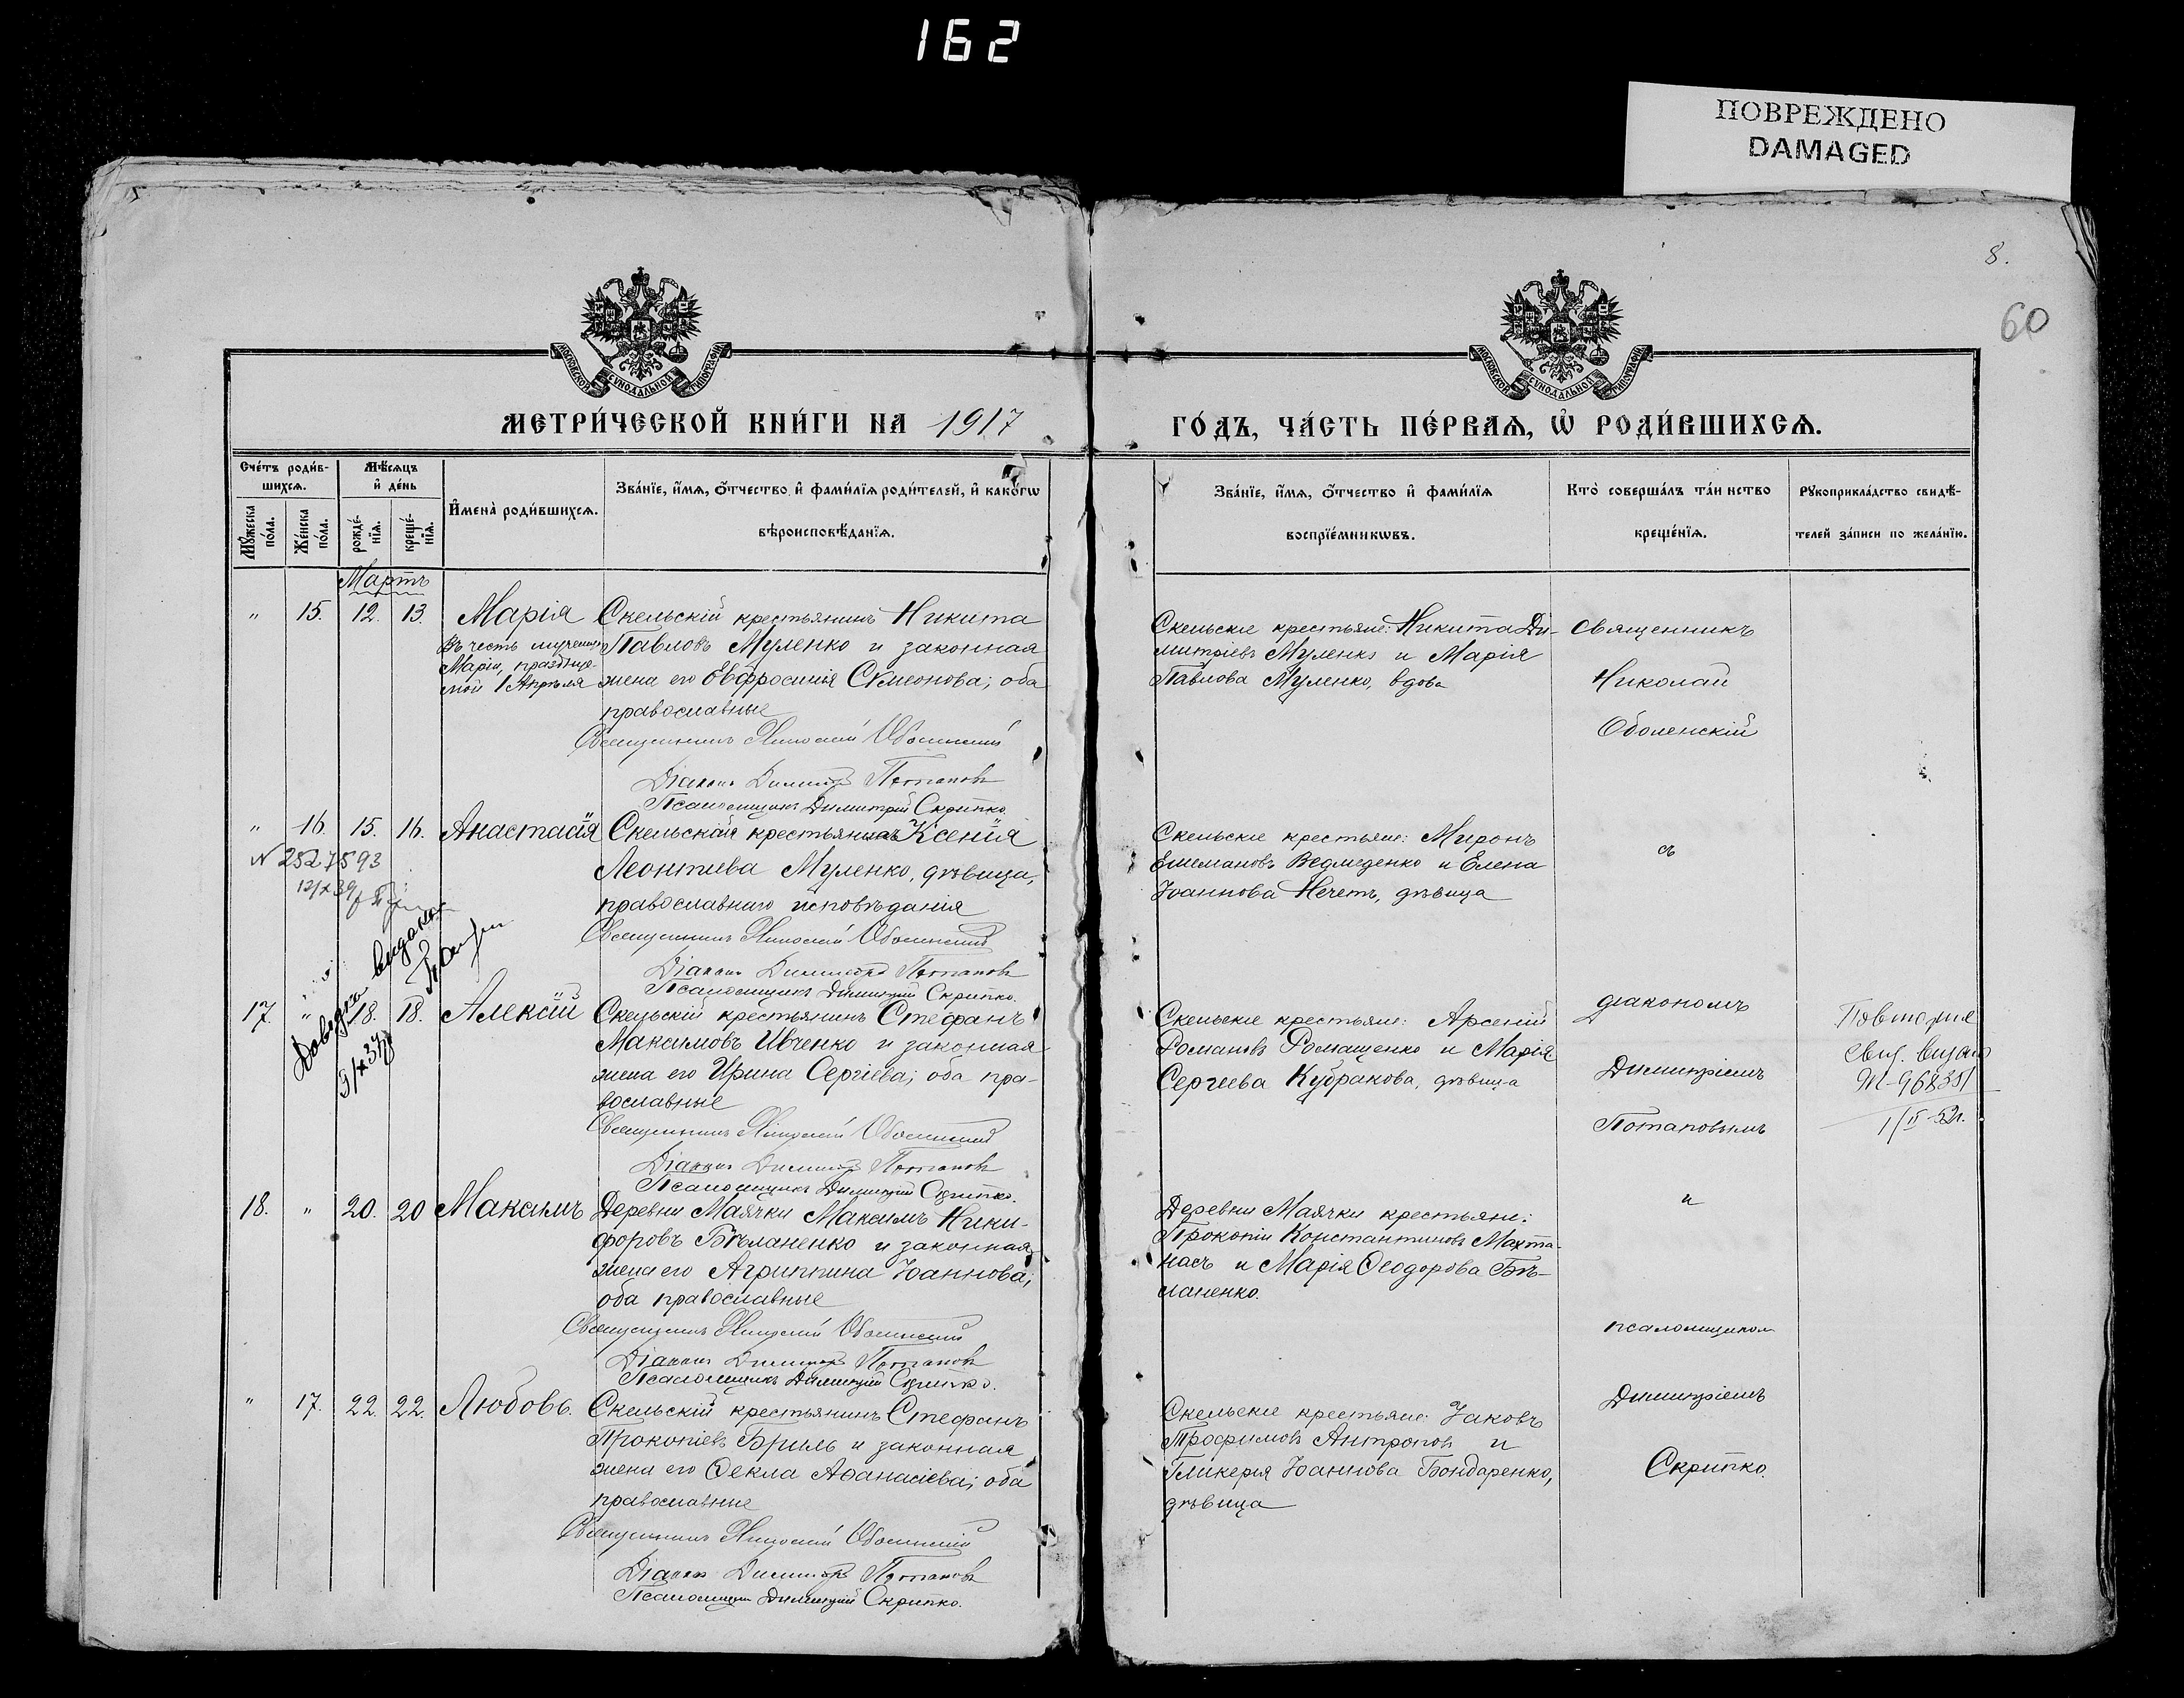 162
ПОВРЕЖДЕНО
DAMAGED
8.
60
МОСКОВСКОЙ СѴНОДАЛЬНОЙ ТИПОГРАФІИ
МОСКОВСКОЙ СѴНОДАЛЬНОЙ ТИПОГРАФІИ
МЕТРИ́ЧЕСКОЙ КНИ́ГИ НА 1917
ГО́ДЪ, ЧА́СТЬ ПЕ́РВАѦ, Ѡ҆ РОДИ́ВШИХСѦ.
Счетъ роди́в-
шихсѧ.
Мѣ́сѧцъ
и҆ де́нь
Мꙋ́жеска по́ла.
Же́нска по́ла.
рожде́-
нїѧ.
креще́-
нїѧ.
И҆мена̀ роди́вшихсѧ.
Зва́нїе, и҆́мѧ, ѻ҆́тчество и҆ фами́лїѧ роди́телей, и҆ како́гѡ
вѣроисповѣ́данїѧ.
Зва́нїе, и҆́мѧ, ѻ҆́тчество и҆ фами́лїѧ
воспрїе́мникѡвъ.
Кто̀ соверша́лъ та́инство
креще́нїѧ.
Рꙋкоприкла́дство свидѣ́-
телей за́писи по жела́нїю.
Мартъ
" 15. 12. 13. Марія
Въ честь мученицы
Маріи, праздНуе-
мой 1 Апрѣля
Скельскій крестьянинъ Никита
Павловъ Муленко и законная
жена его Евфросинія Симеонова; оба
православные
Священникъ Николай Оболенскій
Діаконъ Димитрій Потаповъ
Псаломщикъ Димитрій Скрипко.
Скельскіе крестьяне: Никита Ди-
митріевъ Муленко и Марія
Павлова Муленко, вдова
Священникъ
Николай
Оболенскій
" 16. 15. 16. Анастасія
N 2527593
Скельская крестьянка Ксенія
Леонтиева Муленко, дѣвица,
православнаго исповѣданія
Священникъ Николай Оболенскій
Діаконъ Димитрій Потаповъ
Псаломщикъ Димитрій Скрипко.
Скельскіе крестьяне: Миронъ
Ведмеденко и Елена
Іоаннова Нечетъ, дѣвица
съ
Довідка видана
17. " 18. 18. Алексій
Скельскій крестьянинъ Стефанъ
Максимовъ Ивченко и законная
жена его Ирина Сергіева; оба пра-
вославные
Священникъ Николай Оболенскій
Діаконъ Димитрій Потаповъ
Псаломщикъ Димитрій Скрипко.
Скельскіе крестьяне: Арсеній
Романовъ Ромащенко и Марія
Сергеева Кубракова, дѣвица
діакономъ
Димитріемъ
Потаповымъ
Повторне
свид. видано
968351
1/II-52г.
18. " 20. 20 Максимъ
Деревни Маячки Максимъ Ники-
форовъ Бѣланенко и законная
жена его Агриппина Іоаннова;
оба православные
Священникъ Николай Оболенскій
Діаконъ Димитрій Потаповъ
Псаломщикъ Димитрій Скрипко.
Деревни Маячки крестьяне:
Прокопій Константиновъ Махта-
насъ и Марія Ѳеодорова Бѣ-
ланенко.
и
псаломщикомъ
" 17. 22. 22. Любовь.
Скельскій крестьянинъ Стефанъ
Прокопіевъ Бриль и законная
жена его Ѳекла Аѳанасіева; оба
православные
Священникъ Николай Оболенскій
Діаконъ Димитрій Потаповъ
Псаломщикъ Димитрій Скрипко.
Скельскіе крестьяне: Іаковъ
Трофимовъ Антроповъ и
Гликерія Іоаннова Бондаренко,
дѣвица
Димитріемъ
Скрипко.